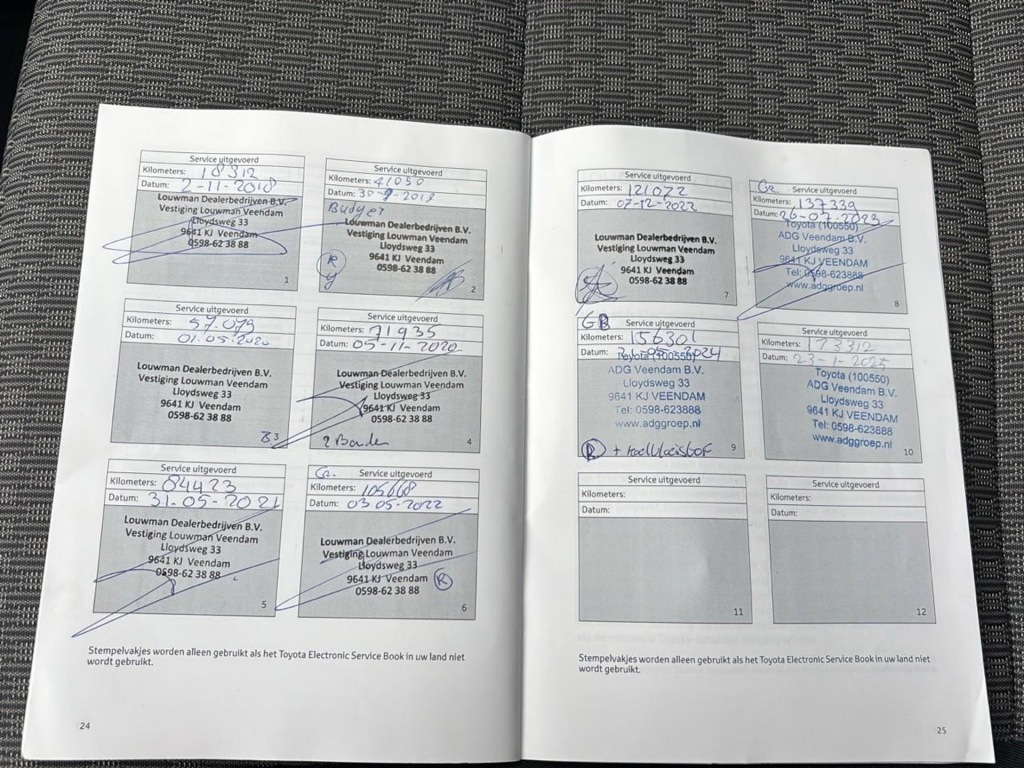 Service uitgevoerd
Kilometers: 18312
Datum: 2-11-2018
Louwman Dealerbedrijven B.V.
Vestiging Louwman Veendam
Lloydsweg 33
9641 KJ Veendam
0598-62 38 88
1
Service uitgevoerd
Kilometers: 41050
Datum: 30-9-2019
Budget
Louwman Dealerbedrijven B.V.
Vestiging Louwman Veendam
Lloydsweg 33
9641 KJ Veendam
0598-62 38 88
R
2
Service uitgevoerd
Kilometers: 57.079
Datum: 01.05.2020
Louwman Dealerbedrijven B.V.
Vestiging Louwman Veendam
Lloydsweg 33
9641 KJ Veendam
0598-62 38 88
3
Service uitgevoerd
Kilometers: 71935
Datum: 05-11-2020
Louwman Dealerbedrijven B.V.
Vestiging Louwman Veendam
Lloydsweg 33
9641 KJ Veendam
0598-62 38 88
2 Banden
4
Service uitgevoerd
Kilometers: 84423
Datum: 31-05-2021
Louwman Dealerbedrijven B.V.
Vestiging Louwman Veendam
Lloydsweg 33
9641 KJ Veendam
0598-62 38 88
5
Service uitgevoerd
Kilometers: 105668
Datum: 03.05-2022
Louwman Dealerbedrijven B.V.
Vestiging Louwman Veendam
Lloydsweg 33
9641 KJ Veendam R
0598-62 38 88
6
Stempelvakjes worden alleen gebruikt als het Toyota Electronic Service Book in uw land niet
wordt gebruikt.
24
Service uitgevoerd
Kilometers: 121072
Datum: 07-12-2022
Louwman Dealerbedrijven B.V.
Vestiging Louwman Veendam
Lloydsweg 33
9641 KJ Veendam
0598-62 38 88
7
Service uitgevoerd
Kilometers: 137339
Datum: 26-07-2023
Toyota (100550)
ADG Veendam B.V.
Lloydsweg 33
9641 KJ VEENDAM
Tel: 0598-623888
www.adggroep.nl
8
GB
Service uitgevoerd
Kilometers: 156301
Datum:
Toyota (100550)
ADG Veendam B.V.
Lloydsweg 33
9641 KJ VEENDAM
Tel: 0598-623888
www.adggroep.nl
R + koelvloeistof
9
Service uitgevoerd
Kilometers: 173312
Datum: 23-1-2025
Toyota (100550)
ADG Veendam B.V.
Lloydsweg 33
9641 KJ VEENDAM
Tel: 0598-623888
www.adggroep.nl
10
Service uitgevoerd
Kilometers:
Datum:
11
Service uitgevoerd
Kilometers:
Datum:
12
Stempelvakjes worden alleen gebruikt als het Toyota Electronic Service Book in uw land niet
wordt gebruikt.
25